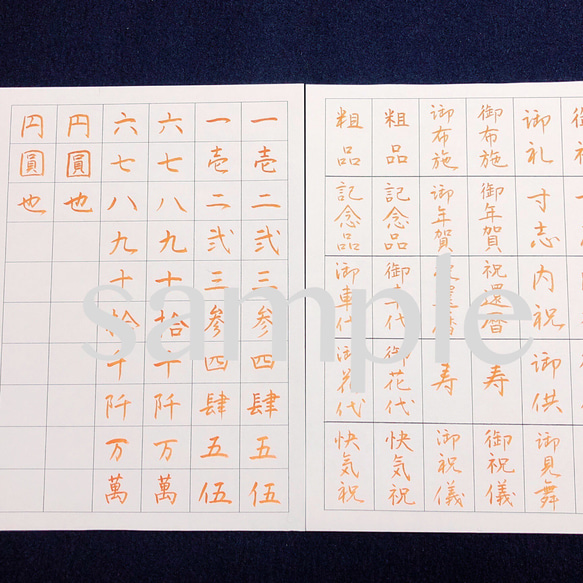 御礼
寸志
内祝
御供
御見舞
御布施
御年賀
祝還暦
寿
御祝儀
御布施
御年賀
祝還暦
寿
御祝儀
粗品
記念品
御車代
御花代
快気祝
粗品
記念品
御車代
御花代
快気祝
一壱二弐三参四肆五伍
一壱二弐三参四肆五伍
六七八九十拾千阡万萬
六七八九十拾千阡万萬
円圓也
円圓也
sample